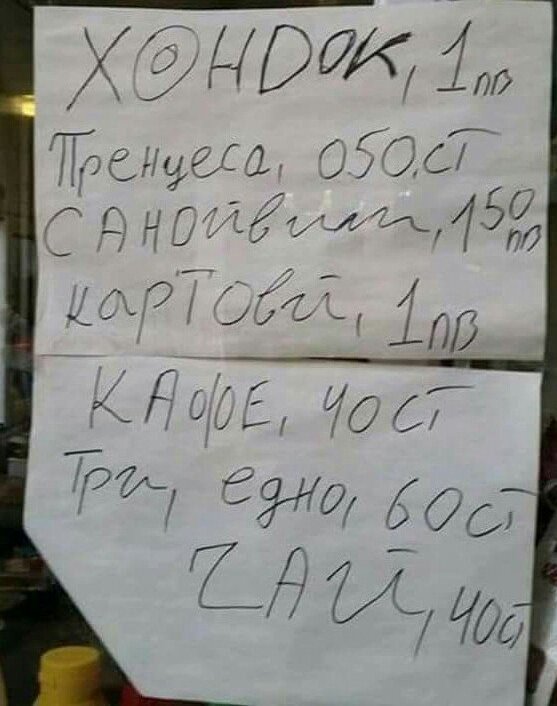 ХОНДОК, 1пв
Пренцеса, 050.ст
САНОЙвич, 150 пв
картовй, 1пв
КАФЕ, 40 ст
Три, едно, 60 ст
ЧАЙ, 40ст